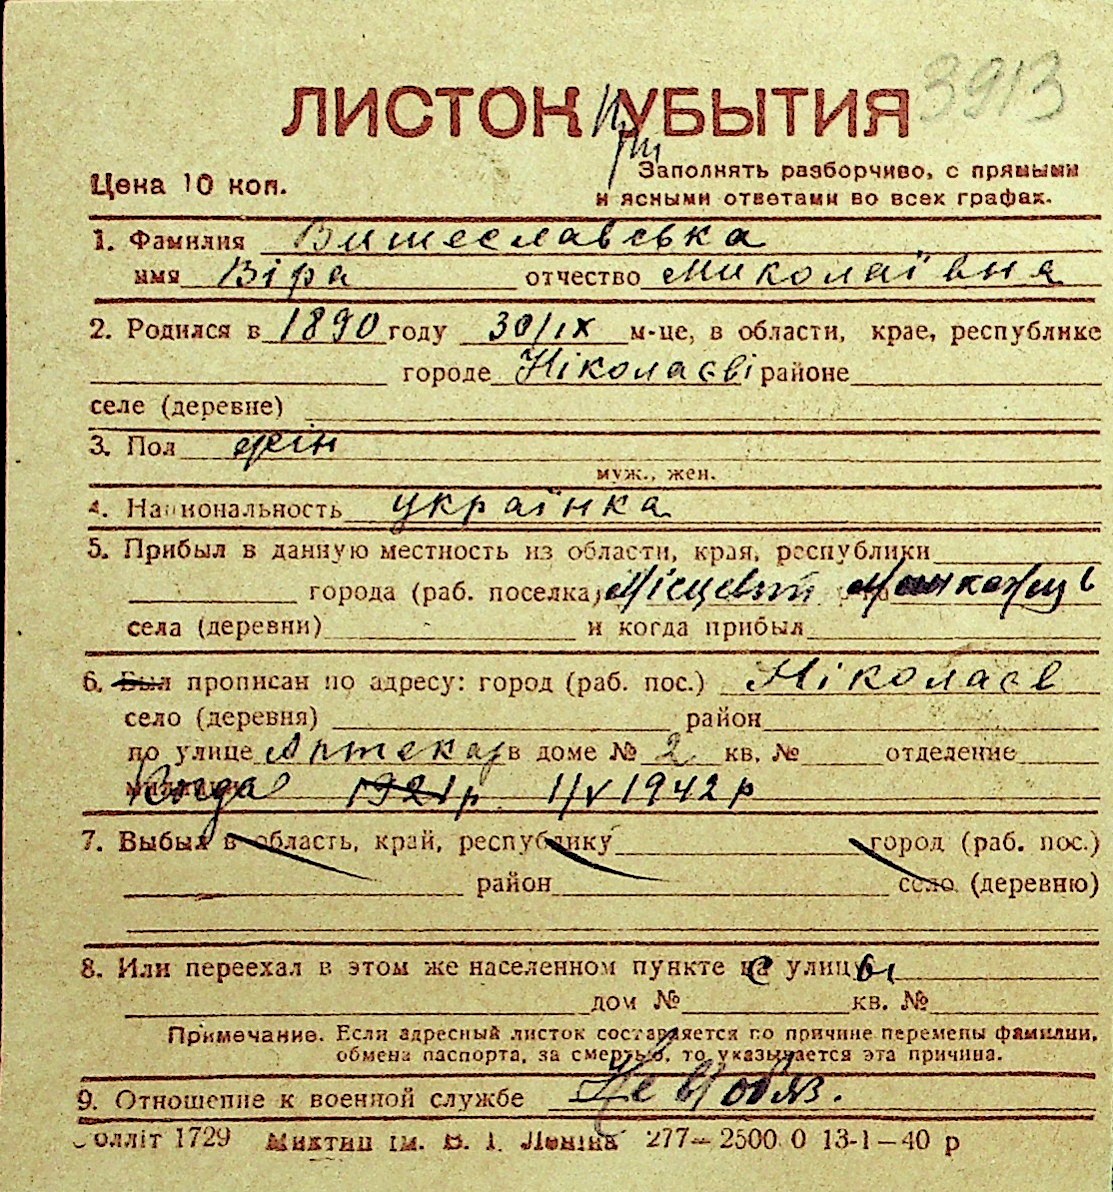 3913
ЛИСТОК УБЫТИЯ
При
Цена 10 коп.
Заполнять разборчиво, с прямыми
и ясными ответами во всех графах.
1. Фамилия Вишеславська
имя Віра отчество Миколаївна
2. Родился в 1890 году 30/IX м-це, в области, крае, республике
городе Ніколаєві районе
селе (деревне)
3. Пол жін
муж., жен.
4. Национальность українка
5. Прибыл в данную местность из области, края, республики
города (раб. поселка) Місцевий
села (деревни) и когда прибыл
6. Был прописан по адресу: город (раб. пос.) Ніколаєв
село (деревня) район
по улице Аптекар в доме № 2 кв. № отделение
милиции Когда 1921 р 1/V 1942 р
7. Выбыл в область, край, республику город (раб. пос.)
район село (деревню)
8. Или переехал в этом же населенном пункте на улицу
дом № кв. №
Примечание. Если адресный листок составляется по причине перемены фамилии,
обмена паспорта, за смертью, то указывается эта причина.
9. Отношение к военной службе Не в/обяз.
Облліт 1729 Миктип ім. В. І. Леніна 277—2500.0 13-1—40 р